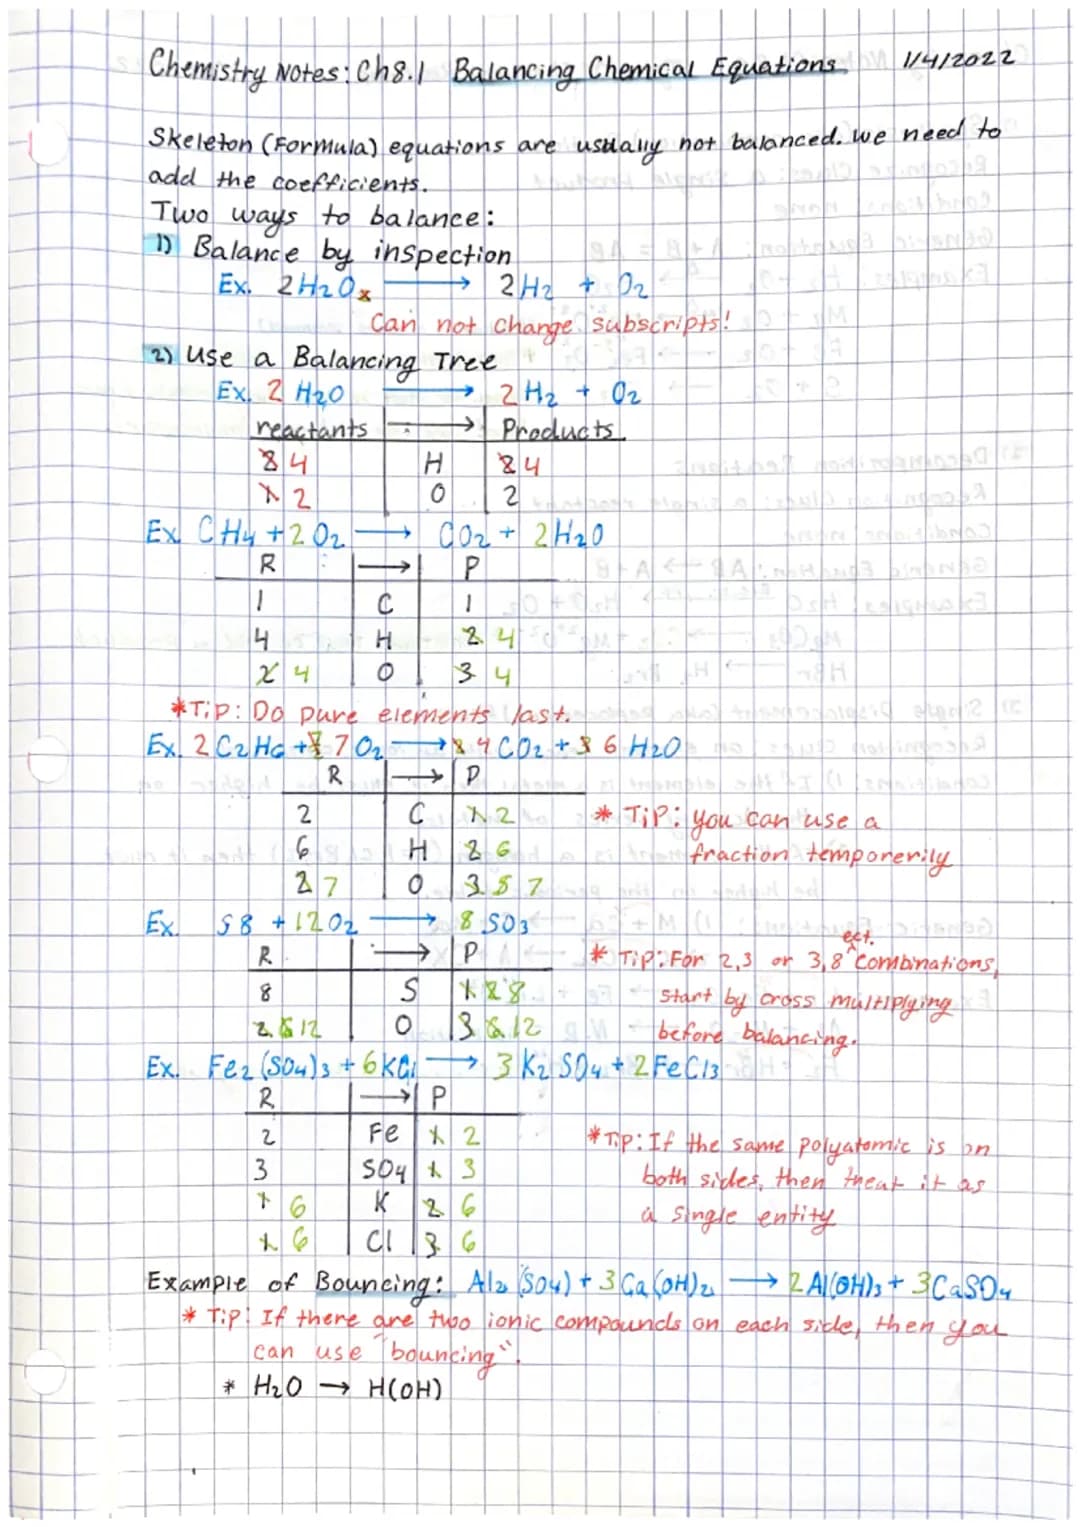 Chemistry Notes: Ch8.1 Balancing Chemical Equations 1/4/2022
Skeleton (Formula) equations are usually not balanced. we need to
add the coefficients.
Two ways to balance:
1) Balance by inspection
Ex. 2H₂Oₓ → 2H₂ + O₂
Can not change subscripts!
2) Use a Balancing Tree
Ex. 2 H₂O → 2H₂ + O₂
reactants → Products
2 4 H 2 4
1 2 O 2
Ex. CH₄ + 2O₂ → CO₂ + 2H₂O
R → P
1 C 1
4 H 2 4
2 4 O 3 4
*Tip: Do pure elements last.
Ex. 2C₂H₆ + 7O₂ → 4CO₂ + 3 6 H₂O
R → P
2 C 1 2
6 H 2 6
2 7 O 3 5 7
* Tip: you can use a
fraction temporerily
Ex. S8 + 12O₂ → 8 SO₃
R → P
8 S 1 2 8
2 6 12 O 3 6 12
* Tip: For 2,3 or 3,8 ect. combinations,
start by cross multiplying
before balancing.
Ex. Fe₂(SO₄)₃ + 6KCl → 3K₂SO₄ + 2FeCl₃
R → P
2 Fe 1 2
3 SO₄ 1 3
1 6 K 2 6
1 6 Cl 3 6
*Tip: If the same polyatomic is on
both sides, then treat it as
a single entity
Example of Bouncing: Al₂(SO₄) + 3Ca(OH)₂ → 2Al(OH)₃ + 3CaSO₄
* Tip: If there are two ionic compounds on each side, then you
can use "bouncing".
* H₂O → H(OH)